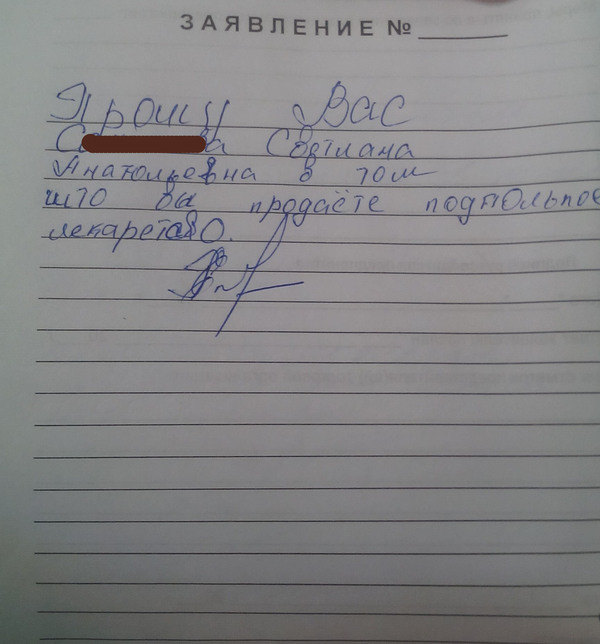 ЗАЯВЛЕНИЕ №
Прошу Вас
С ва Свтлана
Анатольевна в том
што ва продаёте подпольное
лекарство.